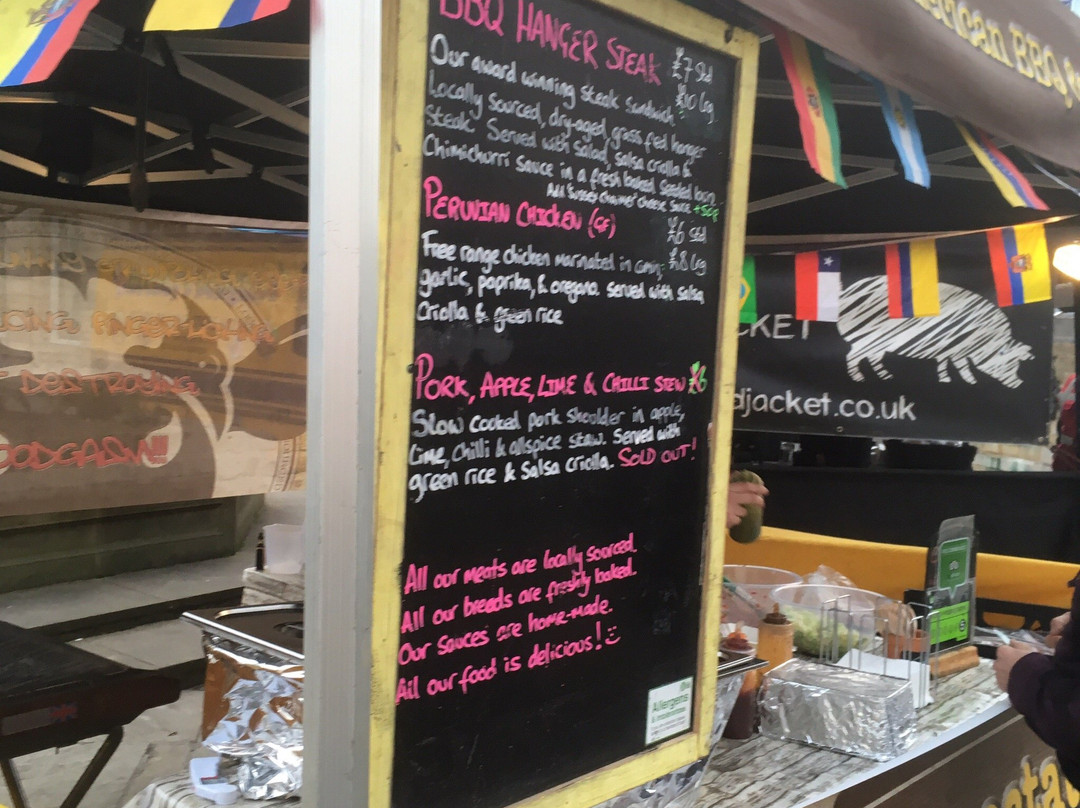 BBQ HANGER STEAK £7 Std
Our award winning steak sandwich. £10 Lg.
Locally sourced, dry-aged, grass fed hanger
steak. Served with Salad, salsa criolla &
Chimichurri Sauce in a fresh baked Seeded bun.
Add Sussex charmer cheese sauce +50p
PERUVIAN CHICKEN (GF) £6 Std
Free range chicken marinated in cumin, £8 Lg
garlic, paprika, & oregano. served with salsa
Criolla & green rice
PORK, APPLE, LIME & CHILLI STEW £6
Slow cooked pork shoulder in apple,
Lime, Chilli & allspice stew. Served with
green rice & Salsa criolla. SOLD OUT!
All our meats are locally sourced.
All our breads are freshly baked.
Our Sauces are home-made.
All our food is delicious!
Allergens
erican BBQ
CKET
djacket.co.uk
FINGER-LICKING
DESTROYING
OODGASM!!!